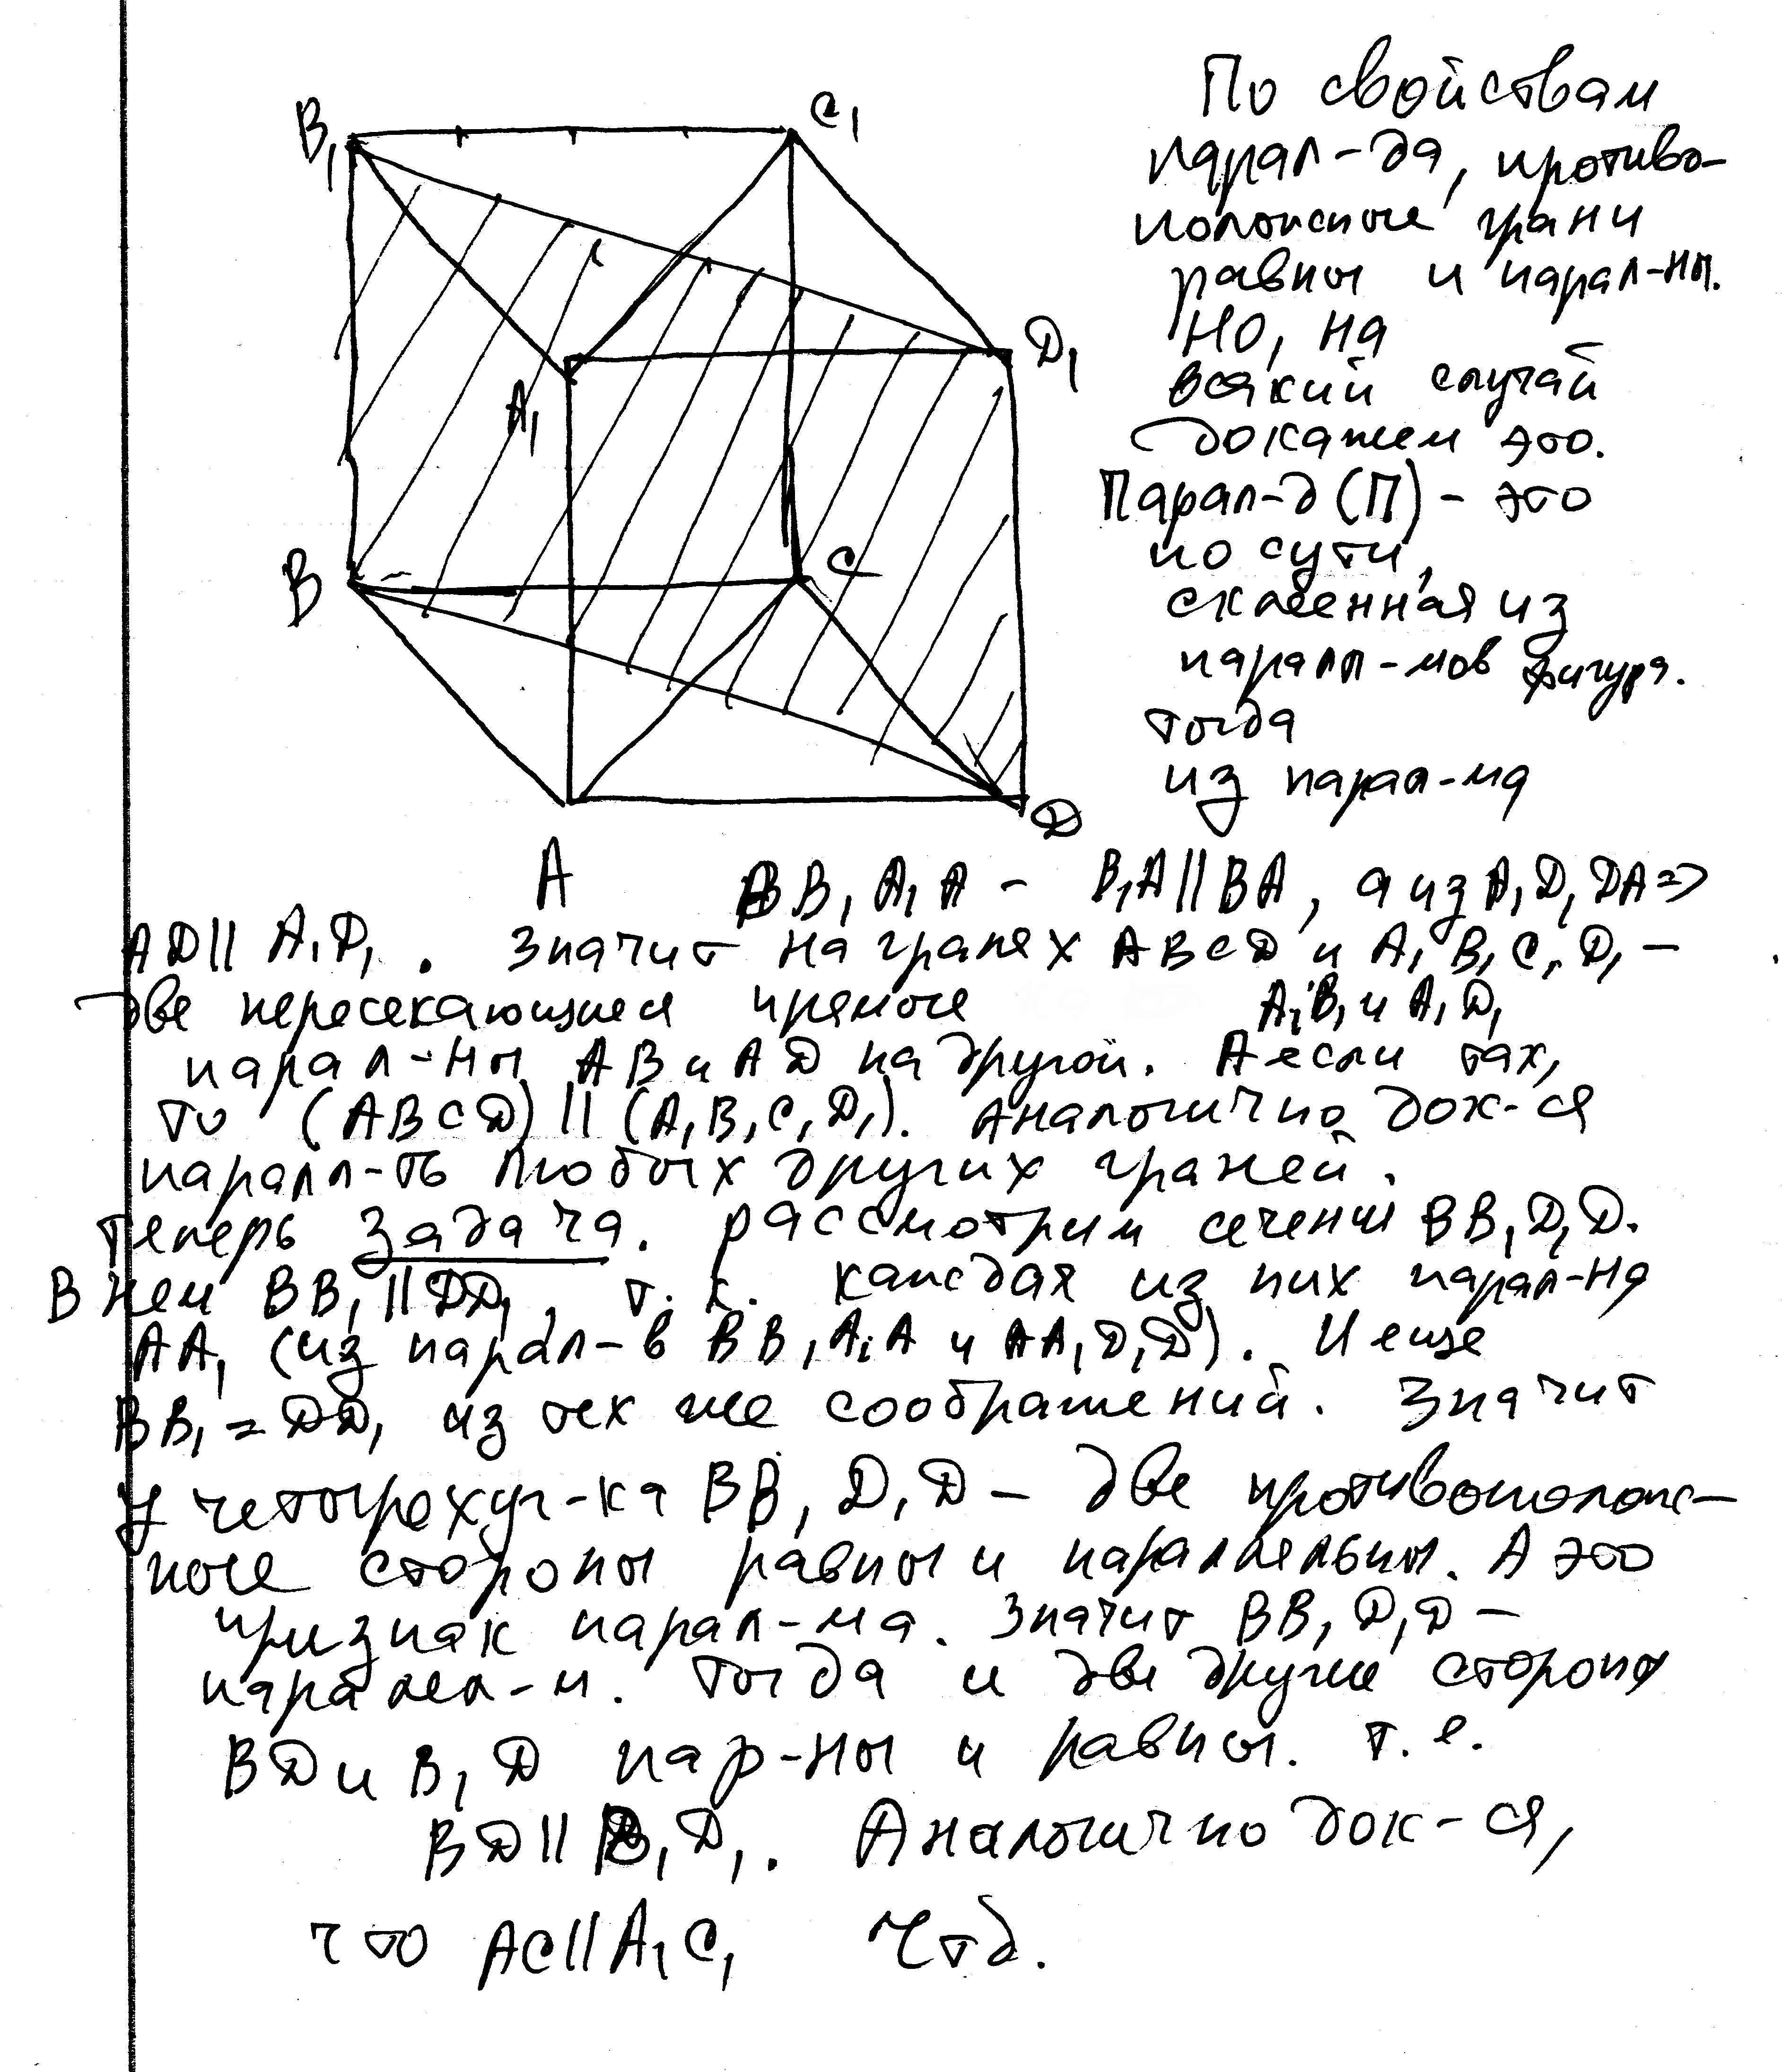 B₁
C₁
D₁
A₁
B
C
D
A
По свойствам
парал-да, противо-
положные грани
равны и парал-ны.
НО, на
всякий случай
докажем это.
Парал-д (П) - это
по сути,
склеенная из
паралл-мов фигура.
тогда
из парал-ма
BB₁A₁A - B₁A || BA, а из A₁D₁DA =>
AD || A₁D₁. Значит на гранях ABCD и A₁B₁C₁D₁ -
две пересекающиеся прямые A₁B₁ и A₁D₁
парал-ны AB и AD на другой. А если так,
то (ABCD) || (A₁B₁C₁D₁). Аналогично док-ся
паралл-ть любых других граней.
Теперь задача. Рассмотрим сечение BB₁D₁D.
В нем BB₁ || DD₁, т.к. каждая из них парал-на
AA₁ (из парал-в BB₁A₁A и AA₁D₁D). И еще
BB₁ = DD₁ из тех же соображений. Значит
у четырехуг-ка BB₁D₁D - две противополож-
ные стороны равны и параллельны. А это
признак парал-ма. Значит BB₁D₁D -
паралел-м. Тогда и две другие стороны
BD и B₁D пар-ны и равны. т.е.
BD || B₁D₁. Аналогично док-ся,
что AC || A₁C₁ Чтд.